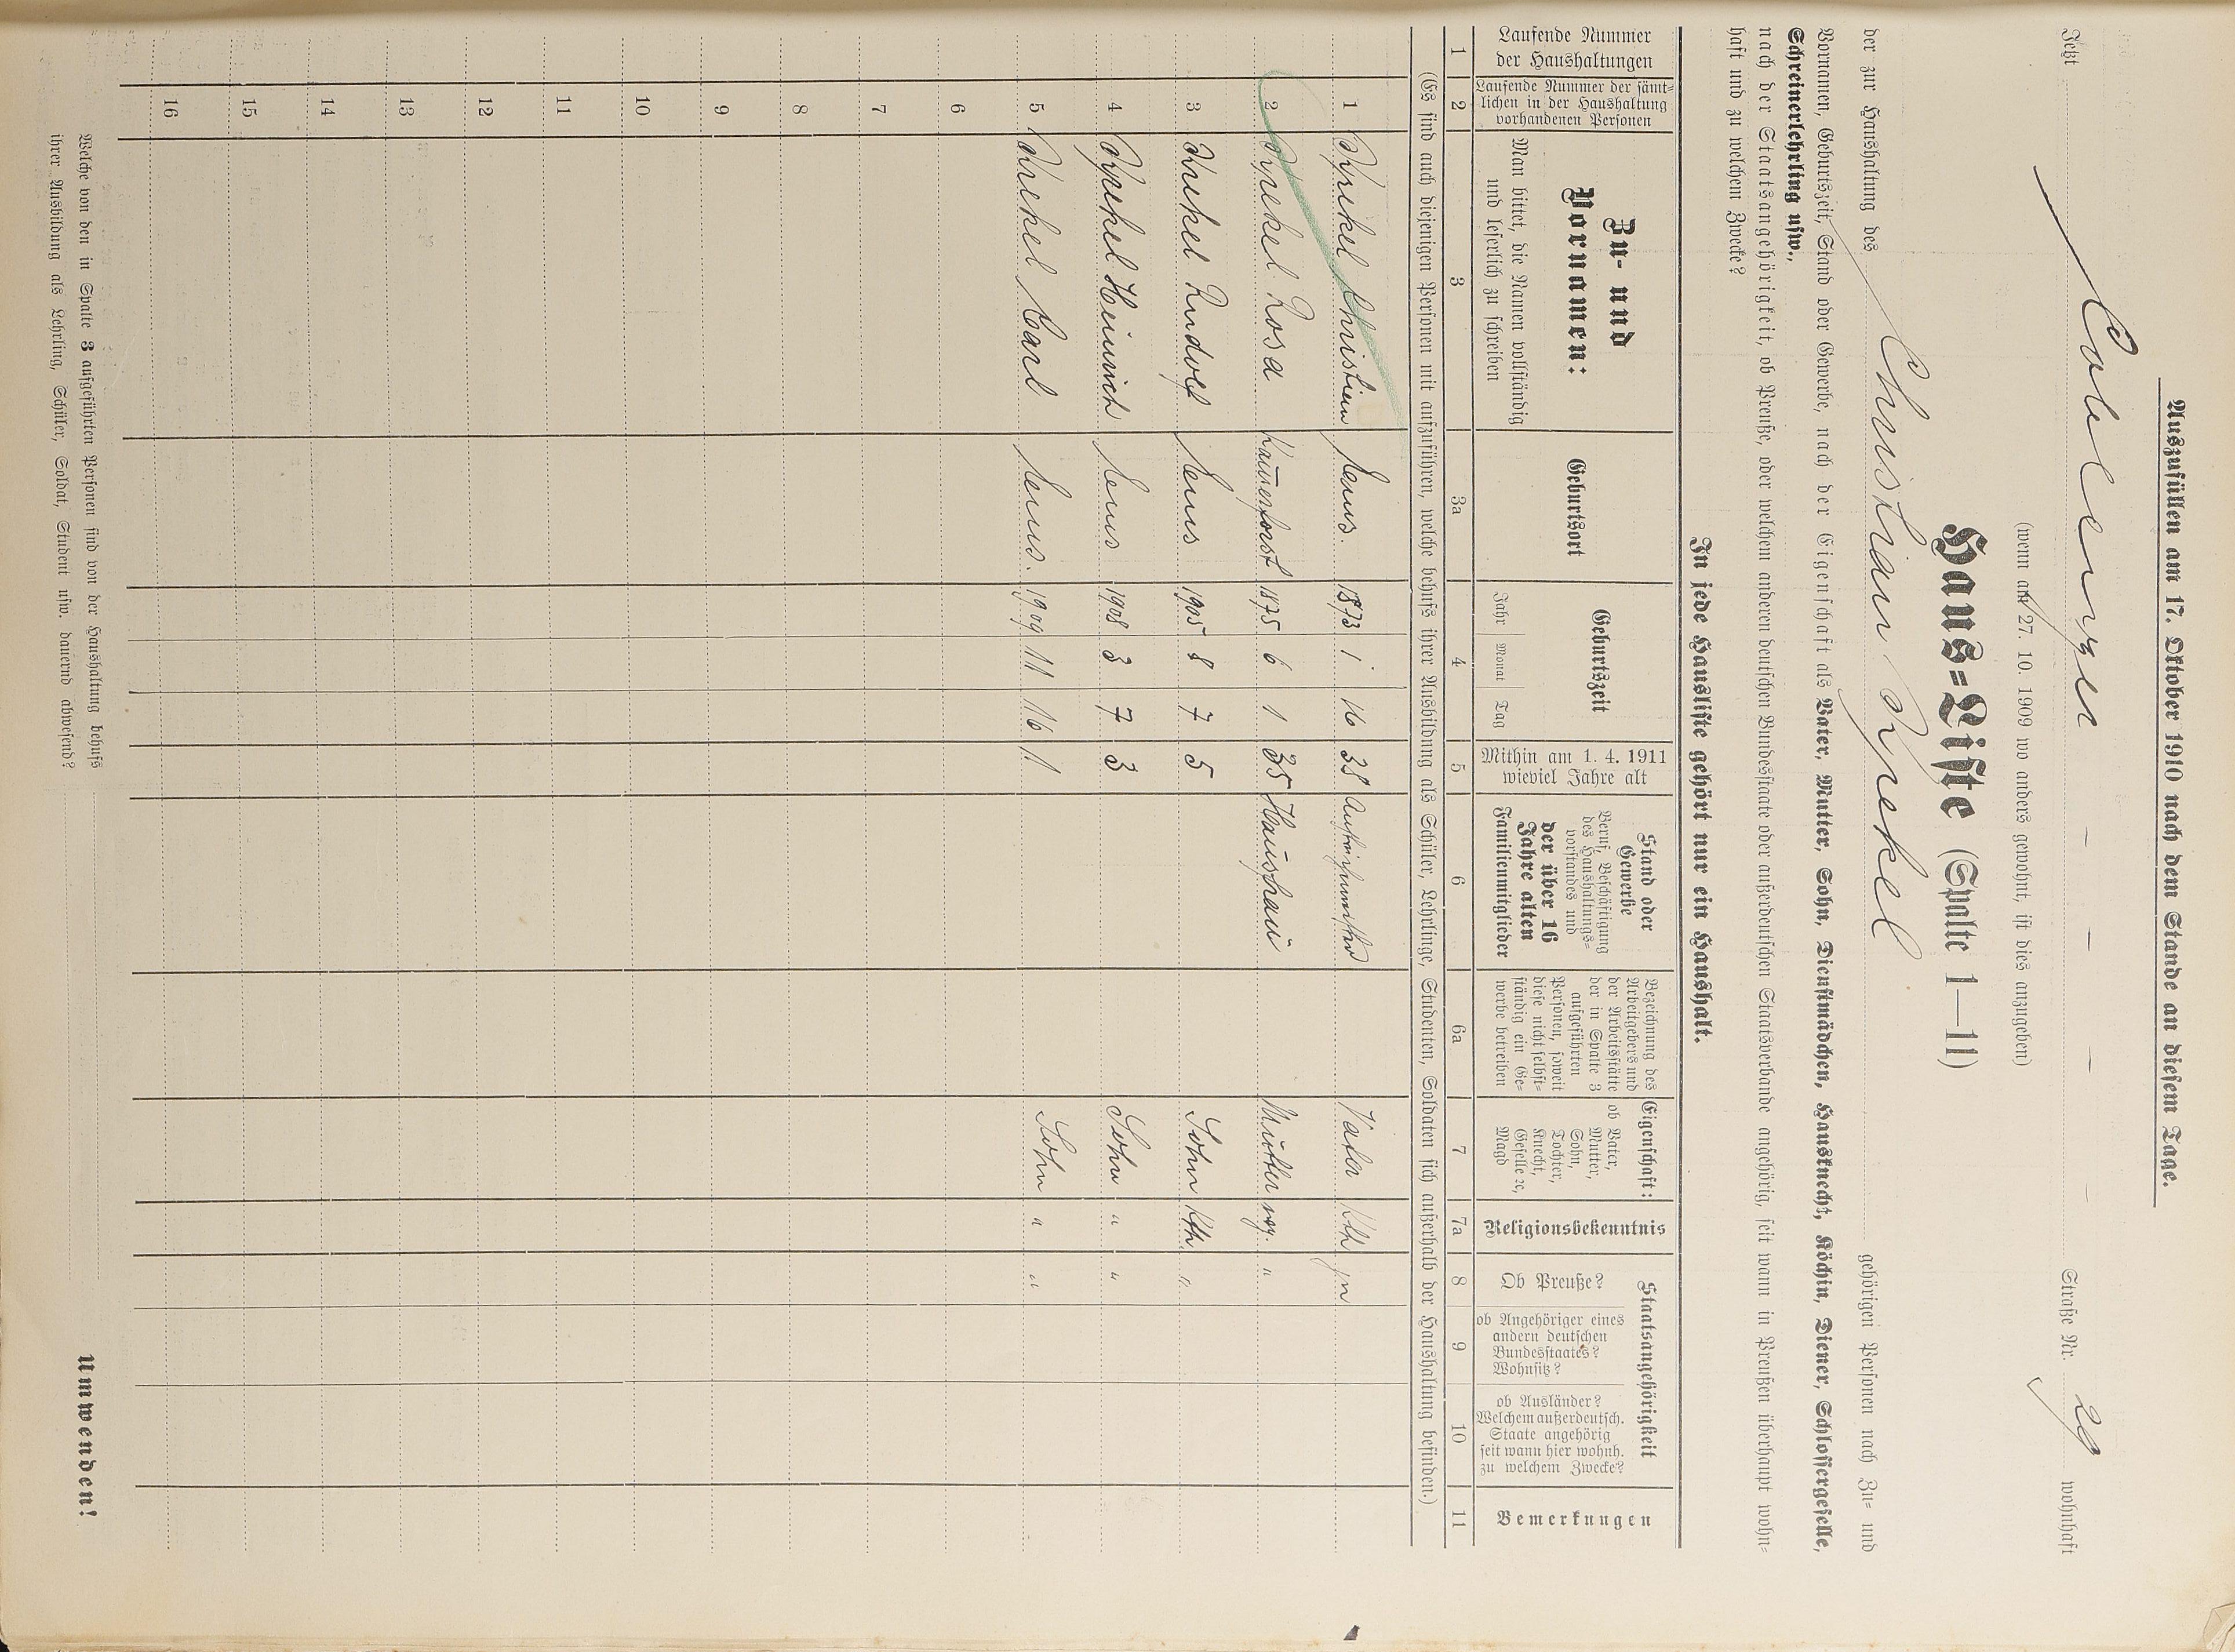 Auszufüllen am 17. Oktober 1910 nach dem Stande an diesem Tage.
Jetzt Coblenzer - - - - Straße Nr. 29 wohnhaft
(wenn am 27. 10. 1909 wo anders gewohnt, ist dies anzugeben)
Haus-Liste (Spalte 1—11)
der zur Haushaltung des Christian Krekel gehörigen Personen nach Zu- und
Vornamen, Geburtszeit, Stand oder Gewerbe, nach der Eigenschaft als Vater, Mutter, Sohn, Dienstmädchen, Hausknecht, Köchin, Diener, Schlossergeselle,
Schreinerlehrling usw.,
nach der Staatsangehörigkeit, ob Preuße, oder welchem anderen deutschen Bundesstaate oder außerdeutschen Staatsverbande angehörig, seit wann in Preußen überhaupt wohn-
haft und zu welchen Zwecke?
In jede Hausliste gehört nur ein Haushalt.
Laufende Nummer der Haushaltungen
Laufende Nummer der sämt-lichen in der Haushaltung vorhandenen Personen
Zu- und Vornamen:
Man bittet, die Namen vollständig und leserlich zu schreiben
Geburtsort
Geburtszeit
Jahr Monat Tag
Mithin am 1. 4. 1911 wieviel Jahre alt
Stand oder Gewerbe
Beruf, Beschäftigung des Haushaltungs-vorstandes und der über 16 Jahre alten Familienmitglieder
Bezeichnung des Arbeitgebers und der Arbeitsstätte der in Spalte 3 aufgeführten Personen, soweit diese nicht selbst-ständig ein Ge-werbe betreiben
Eigenschaft:
ob Vater, Mutter, Sohn, Tochter, Knecht, Geselle ꝛc, Magd
Religionsbekenntnis
Staatsangehörigkeit
Ob Preuße?
ob Angehöriger eines andern deutschen Bundesstaates? Wohnsitz?
ob Ausländer? Welchem außerdeutsch. Staate angehörig seit wann hier wohnh. zu welchem Zwecke?
Bemerkungen
1 2 3 3a 4 5 6 6a 7 7a 8 9 10 11
(Es sind auch diejenigen Personen mit aufzuführen, welche behufs ihrer Ausbildung als Schüler, Lehrlinge, Studenten, Soldaten sich außerhalb der Haushaltung befinden.)
1 Krekel 1873 1 16 38 Vater Kth
2 Krekel Rosa 1875 6 1 35 Hausfrau Mutter "
3 Krekel Rudolf 1905 8 7 5 Sohn Kth. "
4 Krekel Heinrich 1908 3 7 3 Sohn " "
5 Krekel Karl 1909 11 16 1 Sohn " "
6
7
8
9
10
11
12
13
14
15
16
Welche von den in Spalte 3 aufgeführten Personen sind von der Haushaltung behufs
ihrer Ausbildung als Lehrling, Schüler, Soldat, Student usw. dauernd abwesend?
Umwenden!